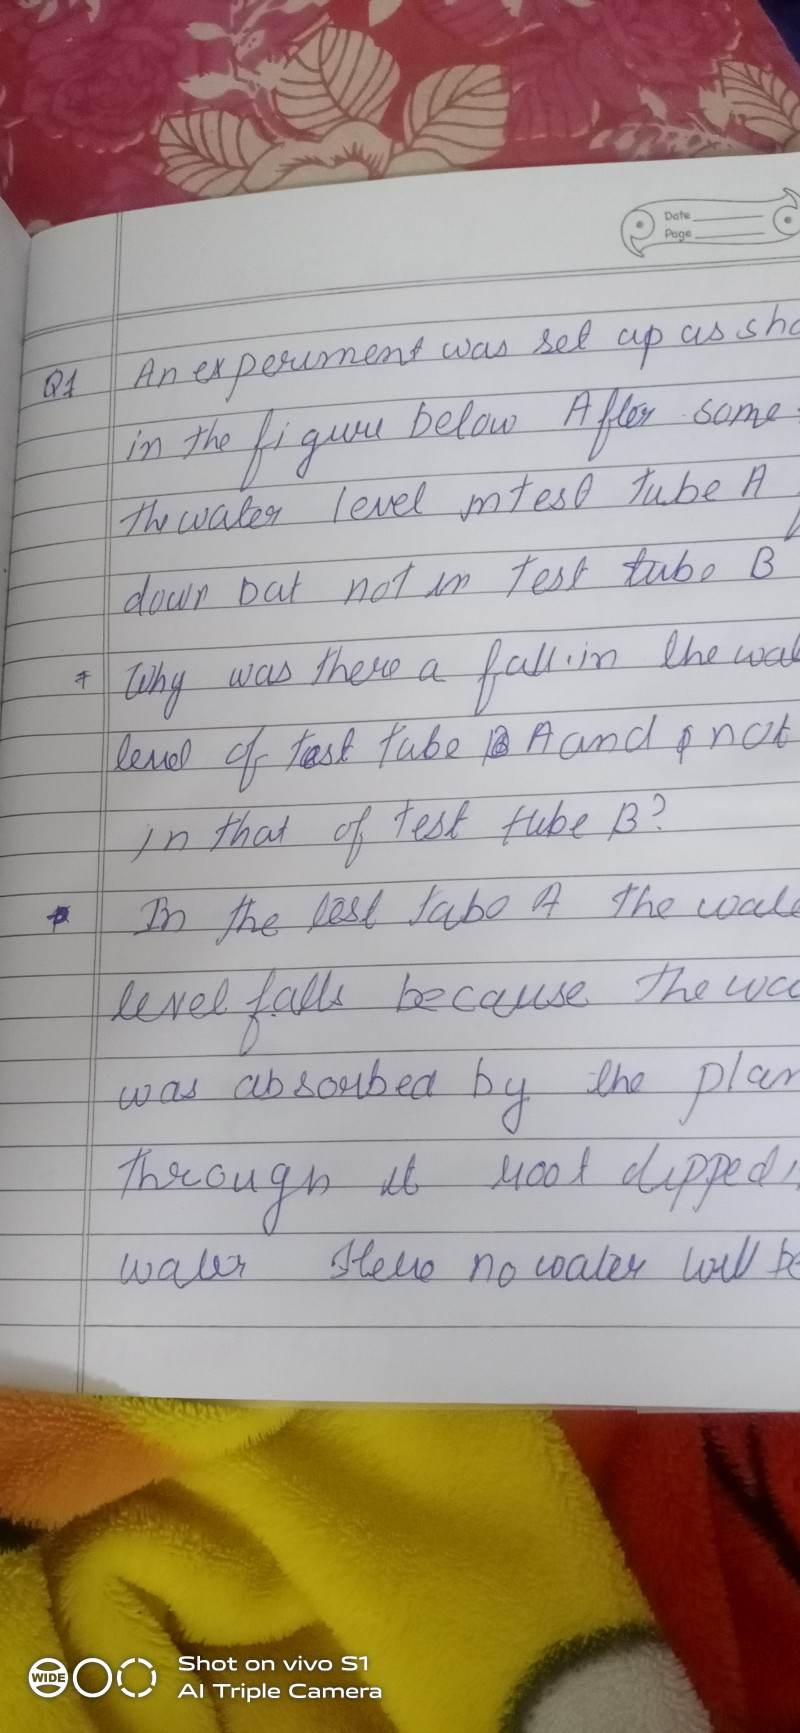 Date
Page
Q1 An experiment was set up as sho
in the figure below After some
the water level in test tube A
down but not in test tube B
* Why was there a fall in the wat
level of test tube A and not
in that of test tube B?
In the test tube A the wate
level falls because the wa
was absorbed by the plan
through it root dipped i
water Here no water will be
WIDE
Shot on vivo S1
AI Triple Camera